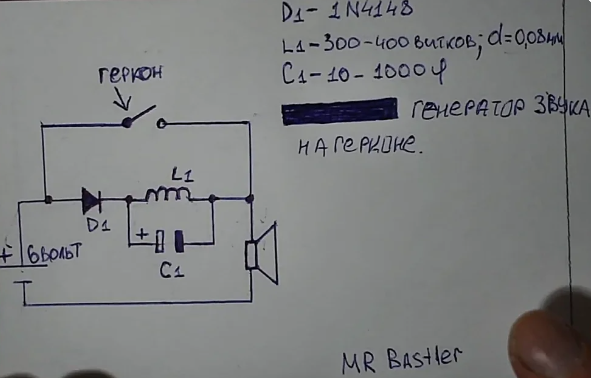 D1- 1N4148
L1-300-400 витков; d=0,08мм
C1-10-1000 φ
ГЕНЕРАТОР ЗВУКА
НА ГЕРКОНЕ.
ГЕРКОН
L1
D1
+
C1
+ 6ВОЛЬТ
MR BAStler